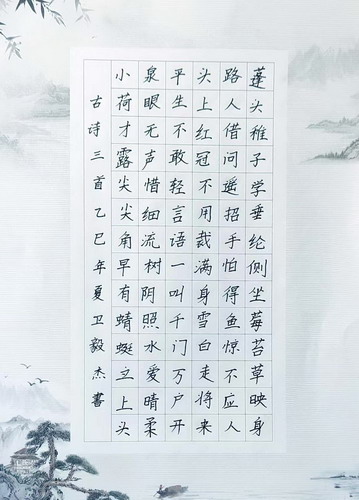 蓬头稚子学垂纶侧坐莓苔草映身
路人借问遥招手怕得鱼惊不应人
头上红冠不用裁满身雪白走将来
平生不敢轻言语一叫千门万户开
泉眼无声惜细流树阴照水爱晴柔
小荷才露尖尖角早有蜻蜓立上头
古诗三首乙巳年夏卫毅杰書